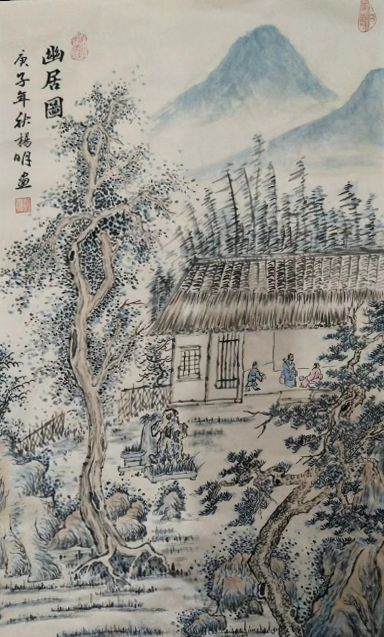 幽居圖
庚子年秋楊明畫